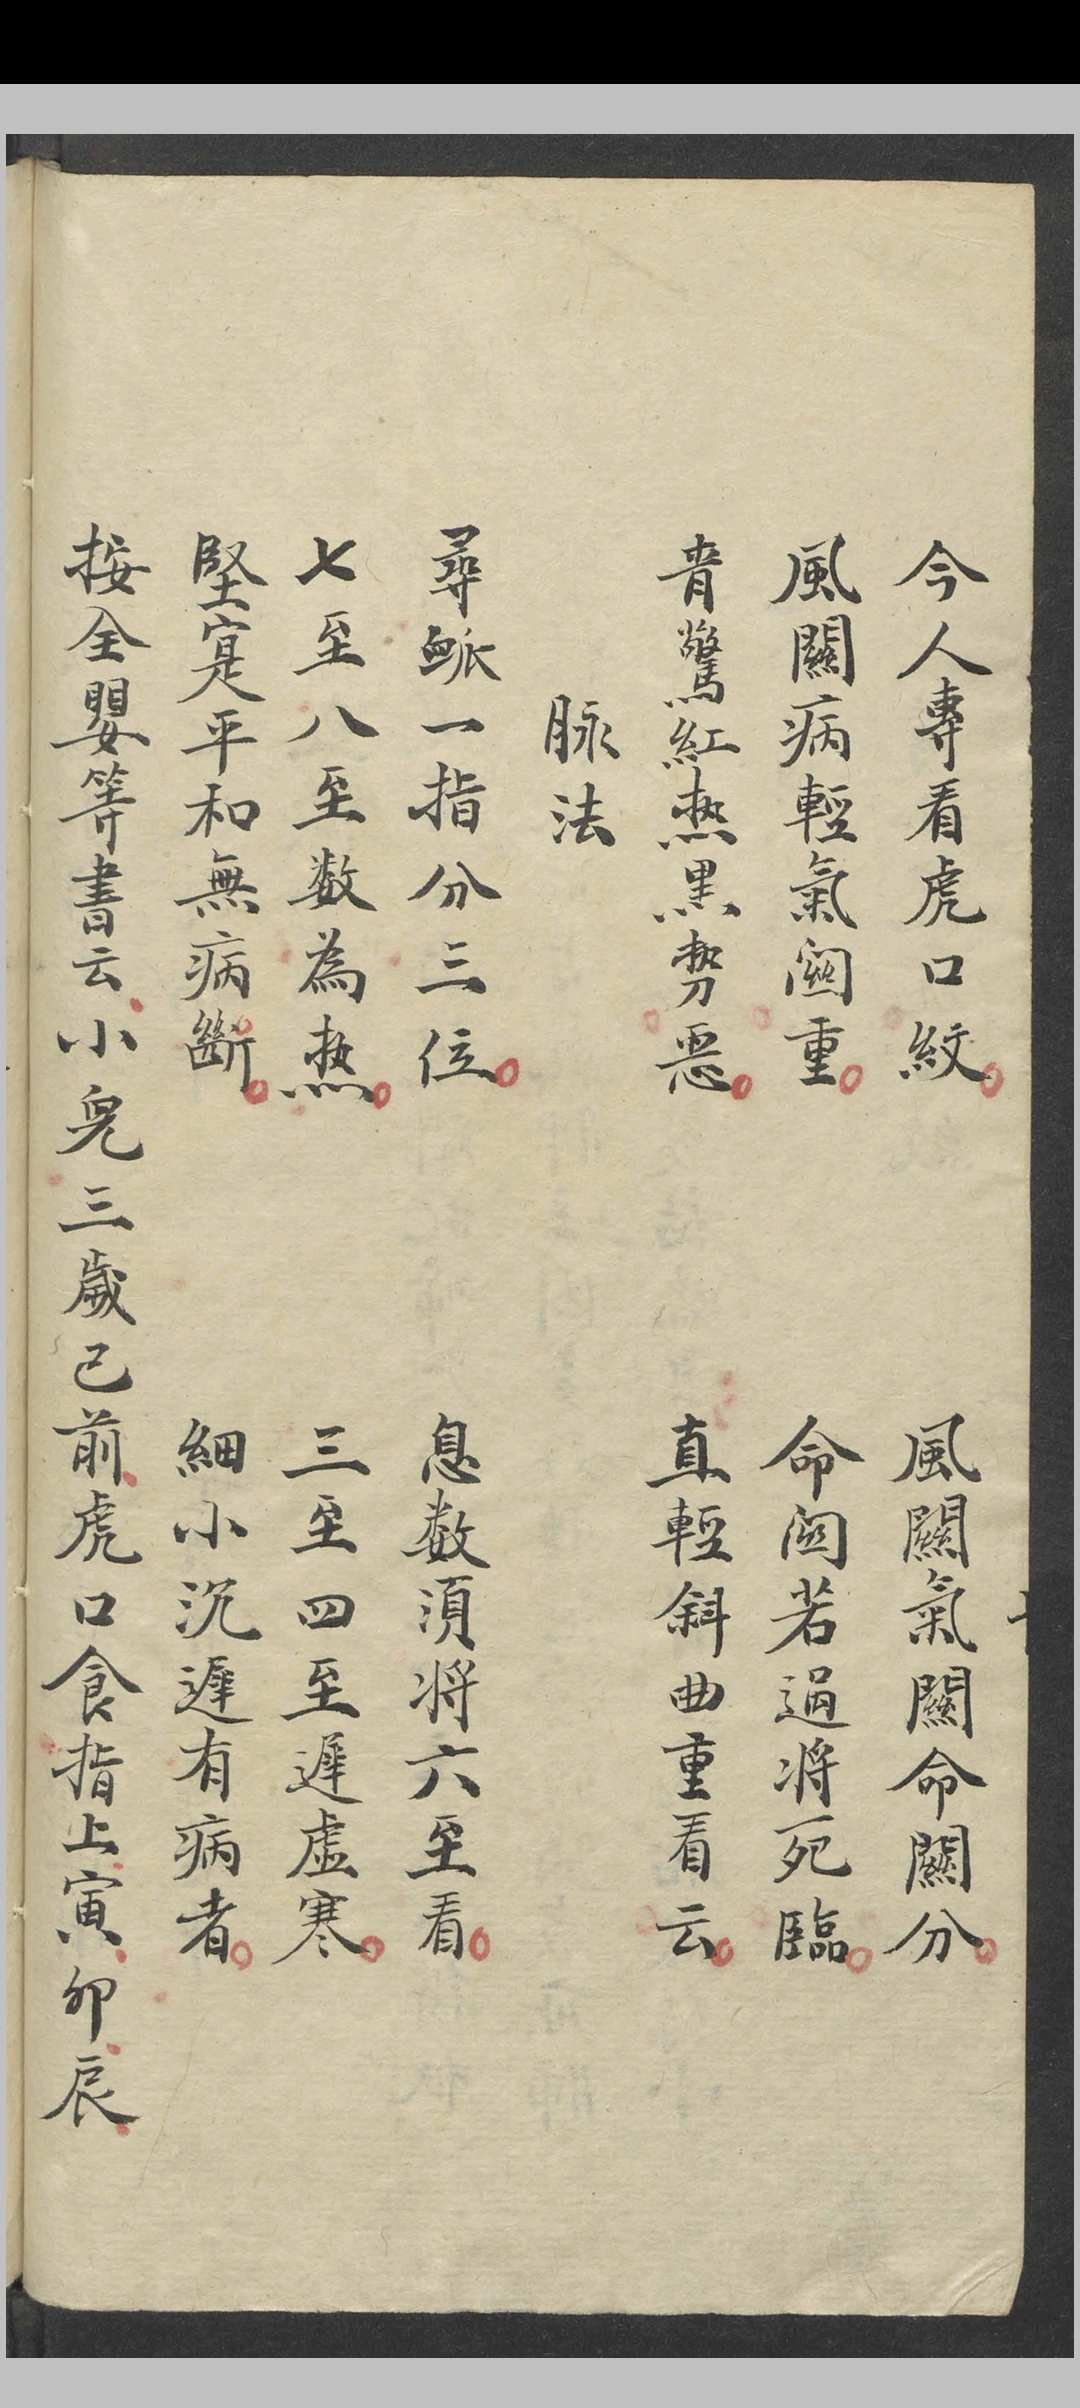 今人專看虎口紋　風關氣關命關分
風關病輕氣関重　命関若過将死臨
青驚紅热黒势惡　直輕斜曲重看云
脉法
尋䘑一指分三位　息数須将六至看
七至八至数為热　三至四至遲虚寒
堅寔平和無病斷　細小沉遲有病者
按全嬰等書云小兒三歲已前虎口食指上寅卯辰